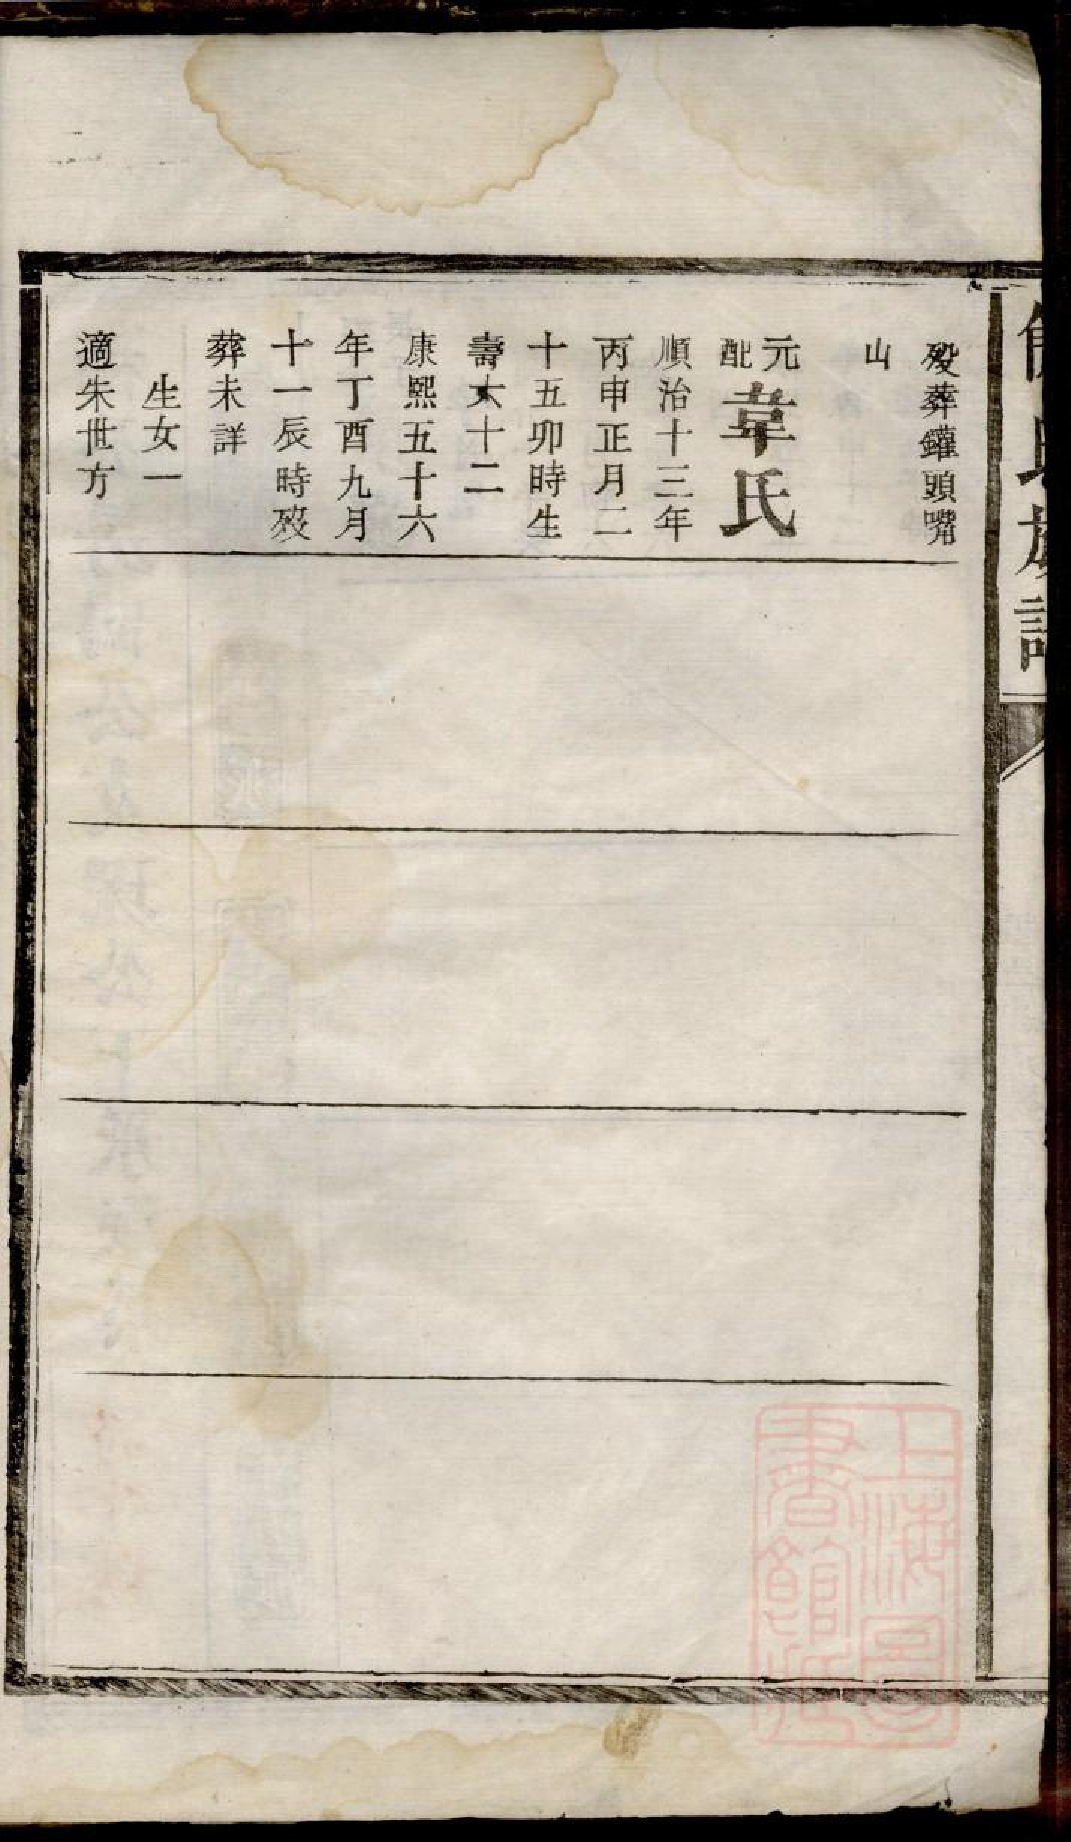 歿葬鑵頭嘴
山
元配韋氏
順治十三年
丙申正月二
十五卯時生
壽六十二
康熙五十六
年丁酉九月
十一辰時歿
葬未詳
生女一
適朱世方
氏族譜
上海圖書館藏